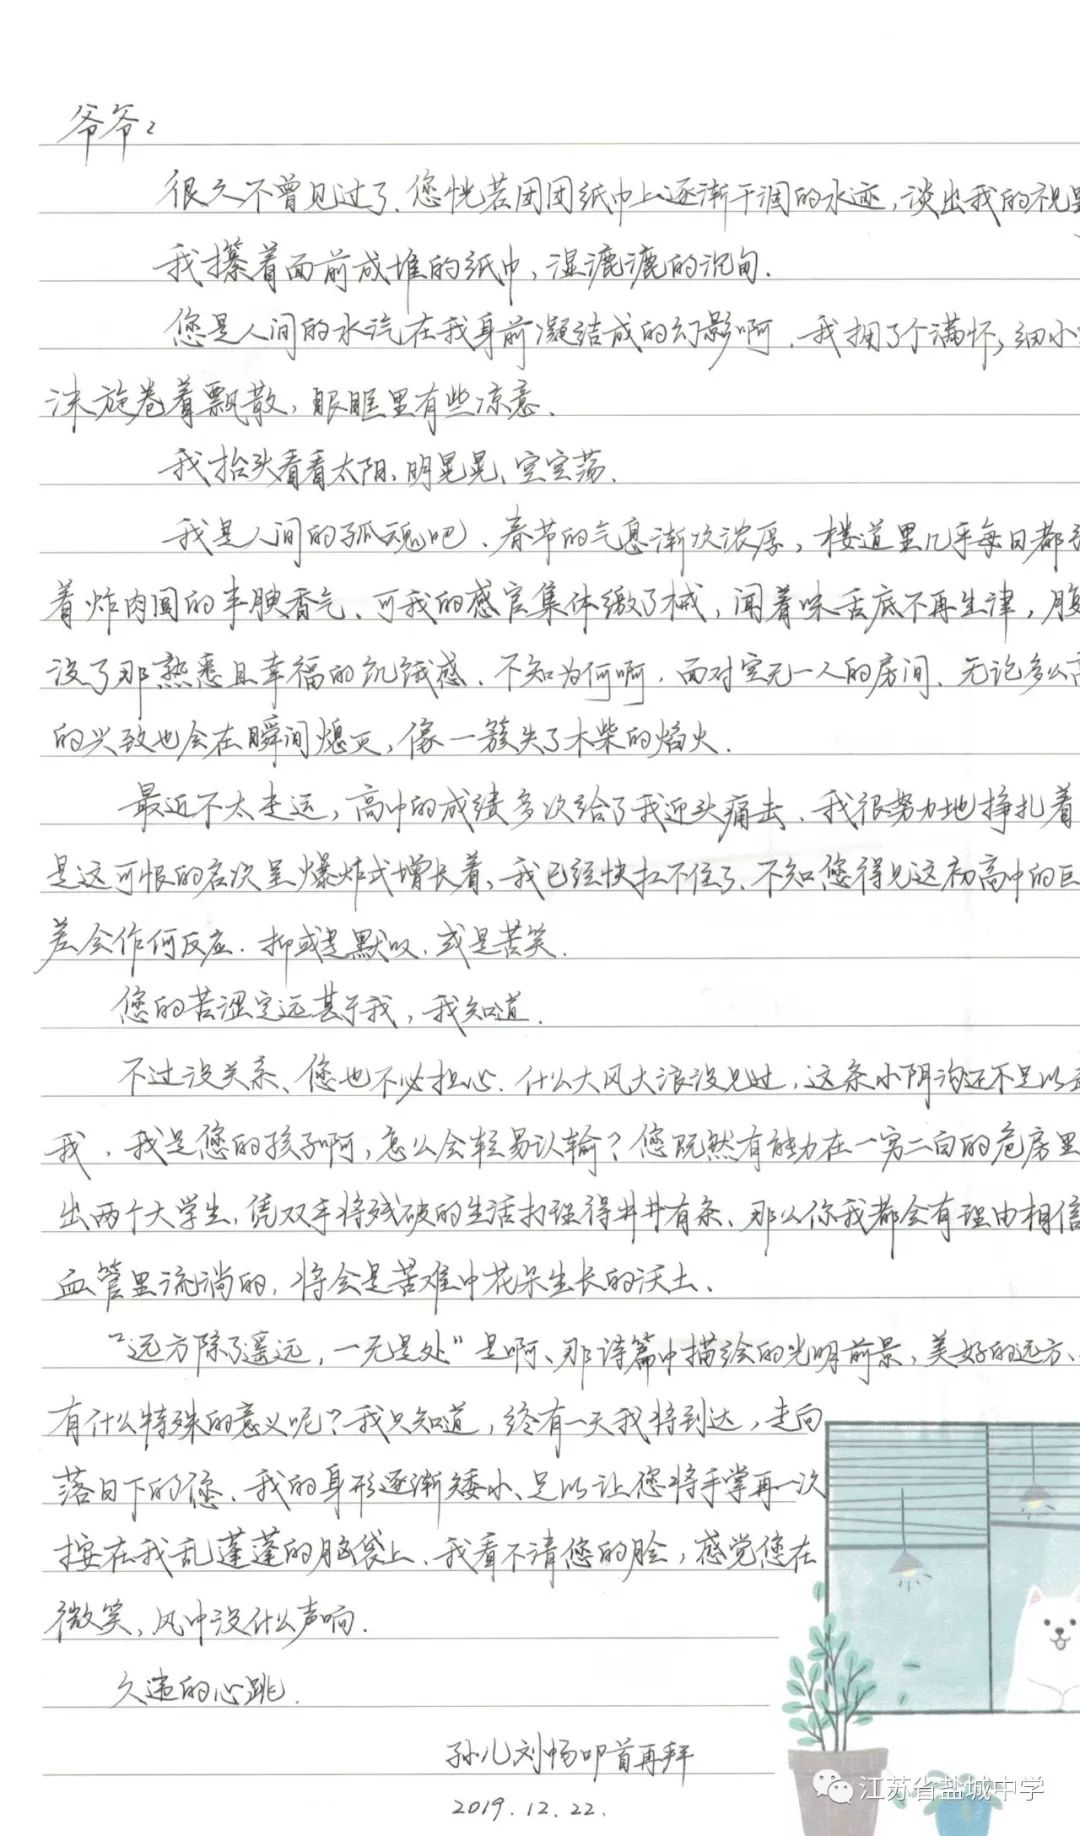 爷爷:
很久不曾见过了.您恍若团团纸巾上逐渐干涸的水迹,淡出我的视
我攥着面前成堆的纸巾,湿漉漉的沉甸.
您是人间的水汽在我身前凝结成的幻影啊.我拥了个满怀,细小
沫旋卷着飘散,眼眶里有些凉意.
我抬头看看太阳,明晃晃、空空荡.
我是人间的孤魂吧.春节的气息渐次浓厚,楼道里几乎每日都
着炸肉圆的丰腴香气.可我的感官集体缴了械,闻着味舌底不再生津,腹
没了那熟悉且幸福的饥饿感.不知为何啊,面对空无一人的房间.无论多么高
的兴致也会在瞬间熄灭,像一簇失了木柴的焰火.
最近不太走运,高中的成绩多次给了我迎头痛击.我很努力地挣扎着
是这可恨的名次呈爆炸式增长着,我已经快扛不住了.不知您得见这初高中的巨
差会作何反应.抑或是默叹.或是苦笑.
您的苦涩定远甚于我,我知道.
不过没关系、您也不必担心.什么大风大浪没见过,这条小阴沟还不足以
我.我是您的孩子啊,怎么会轻易认输?您既然有能力在一穷二白的危房里
出两个大学生,凭双手将残破的生活打理得井井有条、那么你我都会有理由相信
血管里流淌的,将会是苦难中花朵生长的沃土.
“远方除了遥远,一无是处”是啊、那诗篇中描绘的光明前景,美好的远方、
有什么特殊的意义呢?我只知道,终有一天我将到达,走向
落日下的您.我的身形逐渐矮小、足以让您将手掌再一次
按在我乱蓬蓬的脑袋上.我看不清您的脸,感觉您在
微笑,风中没什么声响.
久违的心跳.
孙儿刘畅叩首再拜
2019.12.22.
江苏省盐城中学